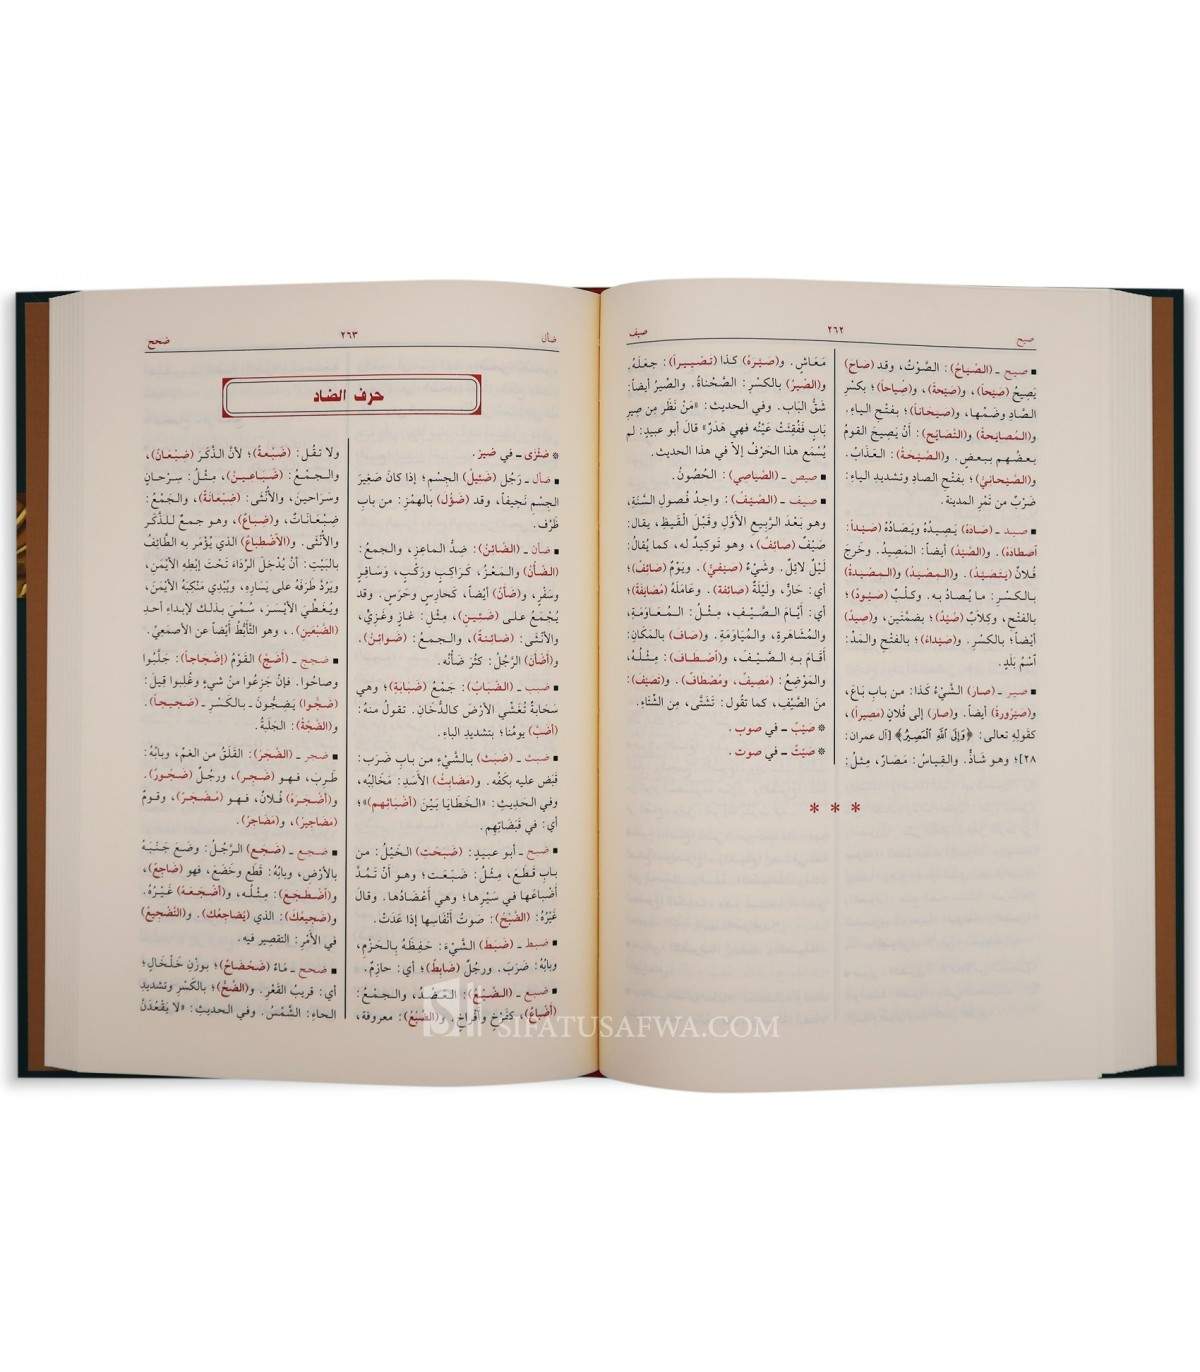 صيح ٢٦٢ صيف
▪ صيح ـ (الصِّيَاحُ): الصَّوْتُ، وقد (صَاح)
يَصِيحُ (صَيْحاً)، و(صَيْحَةً)، و(صُيَاحاً)؛ بكسْرِ
الصَّادِ وضَمِّها، و(صَيَحَاناً)؛ بفَتْحِ الياءِ.
و(المُصايَحةُ) و(التَّصَايُح): أَنْ يَصِيحَ القومُ
بعضُهم ببعضٍ. و(الصَّيْحَةُ): العَذَابُ.
و(الصَّيْحَانيُّ)؛ بفَتْحِ الصادِ وتشديدِ الياءِ:
ضَرْبٌ من تَمْرِ المدينة.
▪ صيد ـ (صَادَهُ) يَصِيدُهُ ويَصَادُهُ (صَيْداً):
اصْطَادَهُ). و(الصَّيْدُ) أيضاً: المَصِيدُ. وخَرَجَ
فُلانٌ (يَتَصَيَّدُ). و(المِصْيَدُ) و(المِصْيَدةُ)
بالكسْرِ: ما يُصادُ به. وكلْبٌ (صَيُودٌ)؛
بالفَتْحِ، وكلابٌ (صُيُدٌ)؛ بضمَّتَيْن، و(صِيدٌ)
أيضاً؛ بالكسْرِ. و(صَيْداءُ)؛ بالفتْحِ والمَدِّ:
اسْمُ بَلَدٍ.
▪ صير ـ (صَارَ) الشَّيْءُ كَذَا: من بابِ بَاعَ،
و(صَيْرُورةً) أيضاً. و(صَارَ) إلى فُلانٍ (مَصِيراً)،
كقَولِهِ تعالى: ﴿وَإِلَى اللَّهِ الْمَصِيرُ﴾ [آل عمران:
٢٨]؛ وهو شاذٌّ. والقِياسُ: مَصَارٌ، مِثْلُ:
مَعَاشٍ. و(صَيَّرهُ) كذا (تَصْيِيراً): جعلَهُ.
و(الصِّيرُ) بالكسْرِ: الصَّحْناةُ. والصِّيرُ أيضاً:
شقُّ البَاب. وفي الحديث: «مَنْ نَظَر مِن صِيرِ
بَابٍ فَفُقِئَتْ عَيْنُه فهي هَدَرٌ» قال أبو عبيد: لم
يُسْمَع هذا الحَرْفُ إلاّ في هذا الحديث.
▪ صيص ـ (الصَّيَاصِي): الحُصُونُ.
▪ صيف ـ (الصَّيْفُ): واحِدُ فُصولِ السَّنَةِ،
وهو بَعْدَ الرَّبيعِ الأوَّلِ وقَبْلَ القَيظِ، يقال:
صَيْفٌ (صائِفٌ)، وهو تَوكيدٌ له، كما يُقالُ:
لَيْلٌ لائِلٌ. وشَيْءٌ (صَيْفيٌّ). ويَوْمٌ (صَائِفٌ)؛
أي: حَارٌّ، ولَيْلَةٌ (صائفة). وعَامَلَهُ (مُصَايَفَةً)؛
أي: أيَّامَ الصَّيْفِ، مِثْلُ: المُعاوَمةِ،
والمُشَاهَرةِ، والمُيَاوَمةِ. و(صَافَ) بالمَكَانِ:
أقَامَ بهِ الصَّيْفَ، و(اصْطَافَ): مِثْلُهُ،
والمَوْضِعُ: (مَصِيفٌ، ومُصْطَافٌ). و(تَصَيَّف):
منَ الصَّيْفِ، كما تقُول: تَشَتَّى، مِن الشِّتَاءِ.
❊ صَيِّبٌ ـ في صوب.
❊ صَيِّتٌ ـ في صوت.
* * *
ضأل ٢٦٣ ضحح
حرف الضاد
❊ ضئزَى ـ في ضيز.
▪ ضأل ـ رَجُل (ضَئيلُ) الجِسْم؛ إذا كانَ صَغيرَ
الجِسْمِ نَحِيفاً، وقد (ضَؤُل) بالهَمْزِ: من بابِ
ظَرُف.
▪ ضأن ـ (الضَّائِنُ): ضِدُّ المَاعِزِ، والجمعُ:
(الضَّأْنُ) والمَعْزُ، كَرَاكِبٍ ورَكْبٍ، وَسَافِرٍ
وسَفْرٍ، و(ضَأَنٌ) أيْضاً، كَحارِسٍ وحَرَسٍ. وقد
يُجْمَعُ على (ضَئِينٍ)، مِثْل: غازٍ وغَزِيٍّ،
والأُنْثَى: (ضَائِنةٌ)، والجمعُ: (ضَوائنُ).
و(أضْأَنَ) الرَّجُلُ: كثُرَ ضَأْنُه.
▪ ضبب ـ (الضَّبَابُ): جَمْعُ (ضَبَابَةٍ)؛ وهي
سَحَابةٌ تُغَشِّي الأرْضَ كالدُّخَانِ. تقولُ منهُ:
(أضَبَّ) يومُنا؛ بتشديدِ الباءِ.
▪ ضبث ـ (ضَبَثَ) بالشَّيْءِ من بابِ ضَرَب:
قَبَض عليهِ بكَفِّه. و(مَضَابِثُ) الأَسَدِ: مَخَالِبُه،
وفي الحَدِيثِ: «الخَطَايَا بَيْنَ (أضْبَاثِهم)»؛
أي: في قَبَضَاتِهِم.
▪ ضبح ـ أبو عبيد: (ضَبَحَتِ) الخَيْلُ: من
بابِ قَطَع، مِثْلُ: ضَبَعَت؛ وهو أَنْ تَمُدَّ
أضْبَاعَها في سَيْرِها؛ وهي أَعْضَادُها. وقالَ
غَيْرُهُ: (الضَّبْحُ): صَوتُ أنْفَاسِها إذا عَدَتْ.
▪ ضبط ـ (ضَبَطَ) الشَّيْءَ: حَفِظَهُ بِالحَزْمِ،
وبابُهُ: ضَرَبَ. ورجُلٌ (ضَابِطٌ)؛ أي: حازِمٌ.
▪ ضبع ـ (الضَّبْعُ): العَضُدُ، والجمْعُ:
(أضْبَاعٌ)، كفَرْخٍ وأفْراخٍ. و(الضَّبُعُ): معروفة،
ولا تقُل: (ضَبُعةٌ)؛ لأنَّ الذَّكَرَ (ضِبْعَانٌ)،
والجمْعُ: (ضَبَاعِينُ)، مِثْلُ: سِرْحانٍ
وسَراحينَ، والأُنْثَى: (ضِبْعَانَةٌ)، والجَمْعُ:
ضِبْعَانَاتٌ، و(ضِبَاعٌ)، وهو جمعٌ للذَّكَر
والأُنْثَى. و(الاضْطِباعُ) الذي يُؤْمَر به الطَّائِفُ
بالبَيْتِ: أنْ يُدْخِلَ الرِّدَاءَ تَحْتَ إبْطِهِ الأيْمَنِ،
ويَرُدَّ طَرَفَهُ على يَسَارِهِ، ويُبْدِي مَنْكِبَهُ الأيْمَنَ،
ويُغَطِّيَ الأيْسَرَ، سُمِّيَ بذلك لإبداءِ أحدِ
(الضَّبْعَينِ)، وهو التَّأَبُّطُ أيْضاً عن الأصْمَعِيِّ.
▪ ضجج ـ (أضَجَّ) القَوْمُ (إضْجَاجاً): جَلَّبُوا
وصاحُوا. فإنْ جَزِعُوا منْ شيءٍ وغُلِبوا قِيلَ:
(ضَجُّوا) يَضِجُّونَ ـ بالكَسْرِ ـ (ضَجيجاً).
و(الضَّجَّةُ): الجَلَبةُ.
▪ ضجر ـ (الضَّجَرُ): القَلَقُ من الغَمِّ، وبابُهُ:
طَرِبَ، فهو (ضَجِر)، ورجُلٌ (ضَجُورٌ).
و(أضْجَرَهُ) فُلانٌ، فهو (مُضْجَرٌ)، وقومٌ
(مَضاجِيرُ)، و(مَضاجِرُ).
▪ ضجع ـ (ضَجَعَ) الرَّجُلُ: وضَعَ جَنْبَهُ
بالأرْضِ، وبابُهُ: قَطَع وخَضَع، فهو (ضَاجِعٌ)،
و(اضْطَجَعَ): مِثْلُه، و(أضْجَعَهُ) غَيْرُهُ.
و(ضَجِيعُكَ): الذي (يُضَاجِعُك). و(التَّضْجِيعُ)
في الأَمْرِ: التقصِير فيه.
▪ ضحح ـ مَاءٌ (ضَحْضَاحٌ)؛ بوزْنِ خَلْخَالٍ؛
أي: قريبُ القَعْرِ. و(الضِّحُّ)؛ بالكَسْرِ وتشديدِ
الحاءِ: الشَّمْسُ. وفي الحديثِ: «لا يَقْعُدَنَّ
SIFATUSAFWA.COM